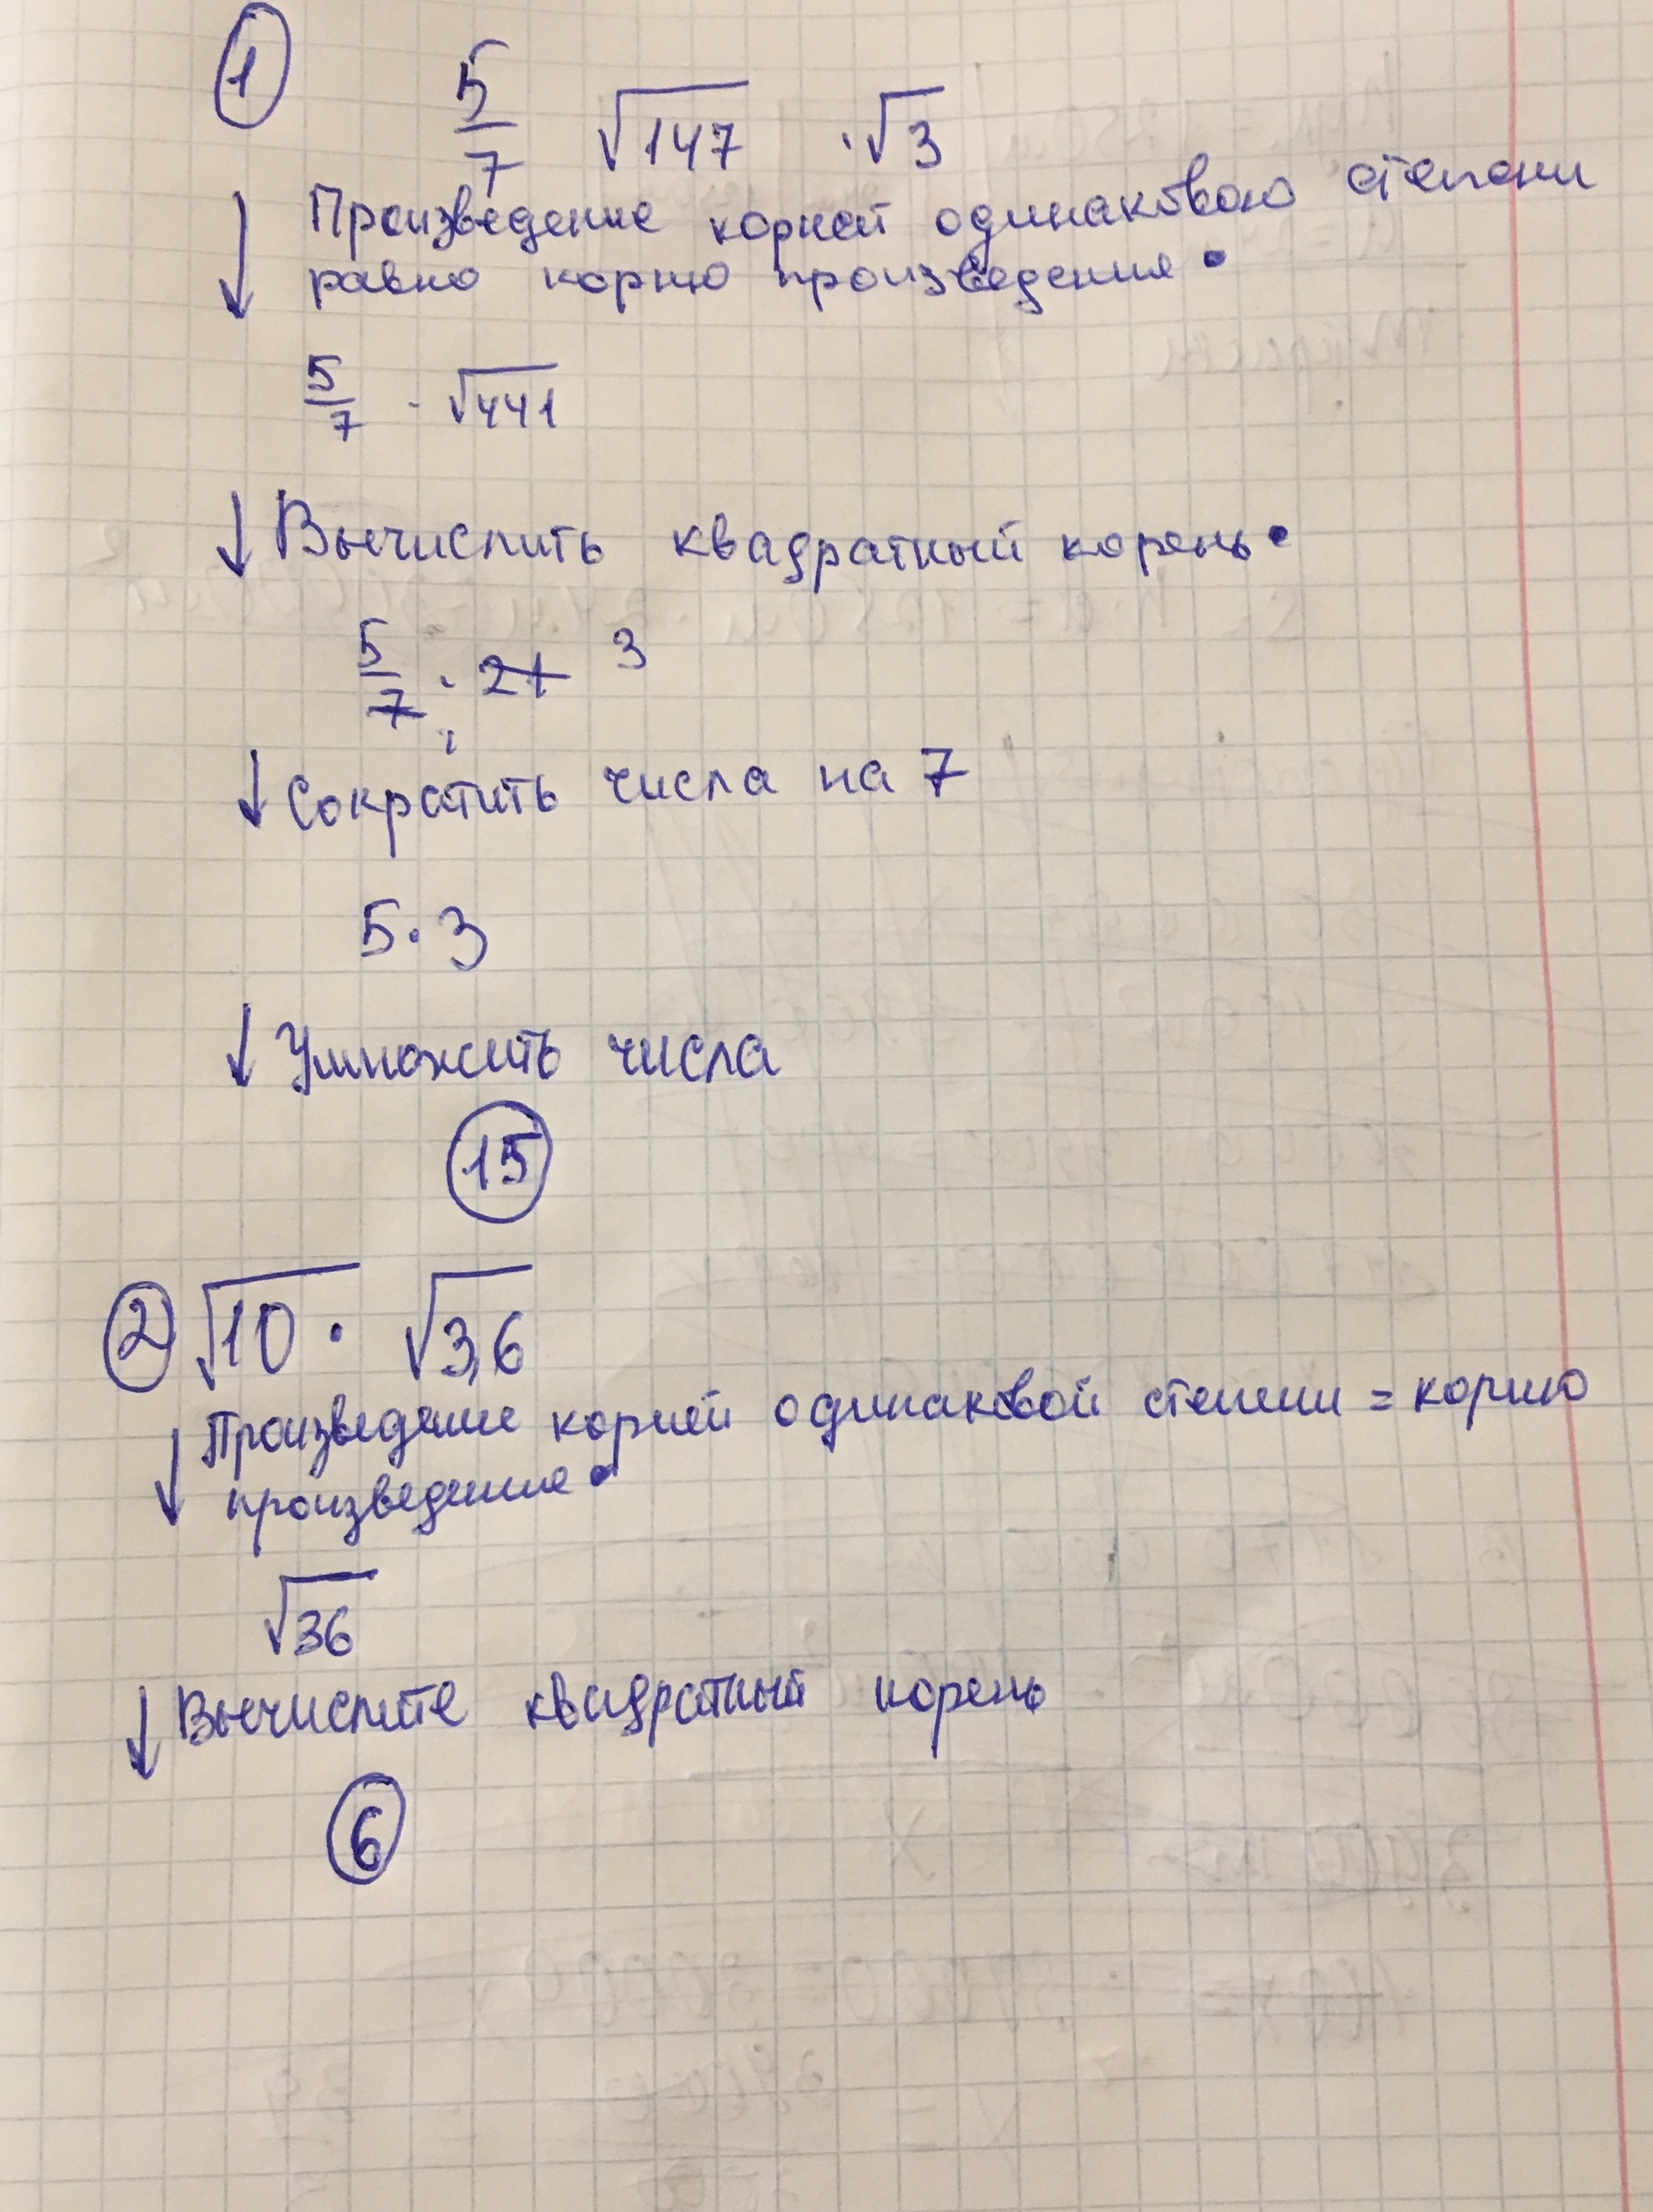 1
5/7 √147 · √3
Произведение корней одинаковою степени
равно корню произведения •
5/7 · √441
Вычислить квадратный корень •
5/7 · 21 3
1
Сократить числа на 7
5 · 3
Умножить числа
15
2 √10 · √3,6
Произведение корней одинаковой степени = корню
произведение •
√36
Вычислите квадратный корень
6